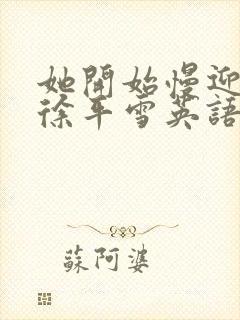 她開始慢迎
徐平雪英語
蘇阿婆